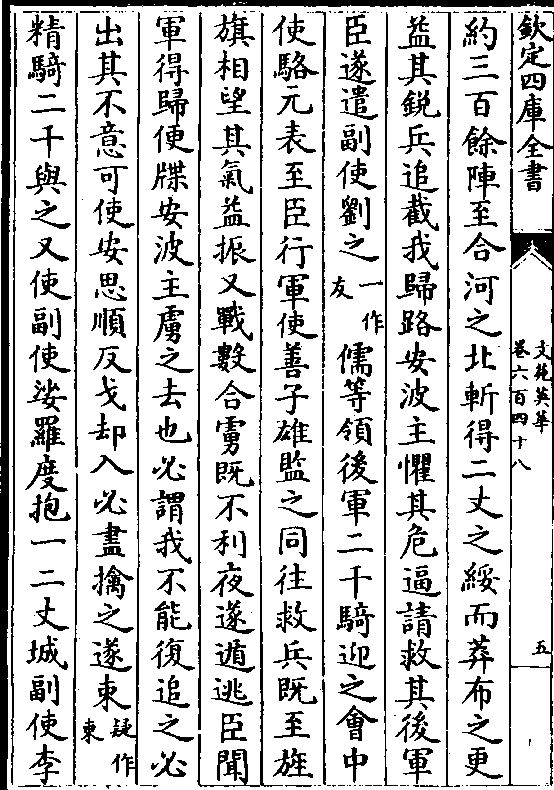 欽定四庫全書
文苑英華
卷六百四十八
五
約三百餘陣至合河之北斬得二丈之綏而莽布之更
益其銳兵追截我歸路安波主懼其危逼請救其後軍
臣遂遣副使劉之一作友儒等領後軍二千騎迎之會中
使駱元表至臣行軍使善子雄監之同往救兵既至旌
旗相望其氣益振又戰數合虜既不利夜遂遁逃臣聞
軍得歸使牒安波主虜之去也必謂我不能復追之必
出其不意可使安思順反戈却入必盡擒之遂東疑作東
精騎二千與之又使副使娑羅度抱一二丈城副使李